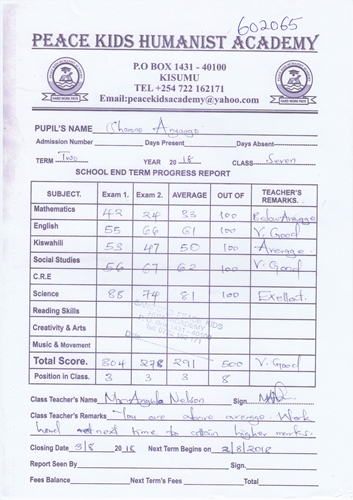 602065
PEACE KIDS HUMANIST ACADEMY
P.O BOX 1431 - 40100
KISUMU
TEL +254 722 162171
Email:peacekidsacademy@yahoo.com
HARD WORK PAYS HARD WORK PAYS
PUPIL'S NAME Anyango
Admission Number Days Present Days Absent
TERM Two YEAR 2018 CLASS Seven
SCHOOL END TERM PROGRESS REPORT
SUBJECT. Exam 1. Exam 2. AVERAGE OUT OF TEACHER'S REMARKS.
Mathematics 42 24 33 100 Below Average
English 55 66 61 100 V. Good
Kiswahili 53 47 50 100 Average
Social Studies 56 67 62 100 V. Good
C.R.E
Science 88 74 81 100 Exellent.
Reading Skills
Creativity & Arts
Music & Movement
Total Score. 304 278 291 500 V. Good
Position in Class. 3 3 3 8
Class Teacher's Name Nelson Sign
Class Teacher's Remarks You are above average. Work
hard next time to attain higher marks.
Closing Date 3/8 2018 Next Term Begins on 2/8/2018
Report Seen By Sign.
Fees Balance Next Term's Fees Total